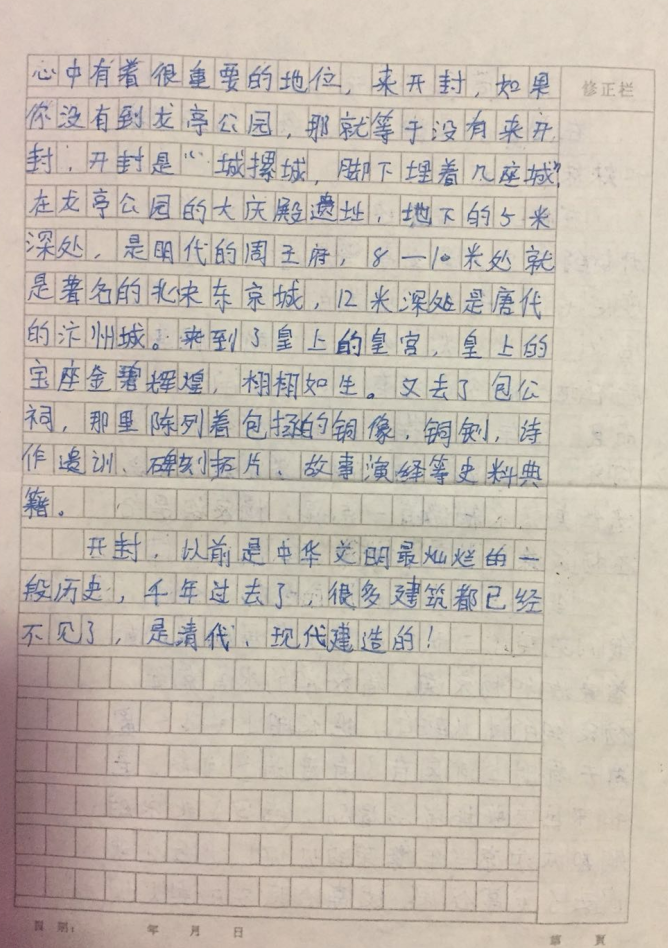 修正栏
心中有着很重要的地位，来开封，如果
你没有到龙亭公园，那就等于没有来开
封，开封是“城摞城，脚下埋着几座城”
在龙亭公园的大庆殿遗址，地下的5米
深处，是明代的周王府，8—10米处就
是著名的北宋东京城，12米深处是唐代
的汴州城。来到了皇上的皇宫，皇上的
宝座金碧辉煌，栩栩如生。又去了包公
祠，那里陈列着包拯的铜像，铜铡，诗
作遗训、碑刻拓片、故事演绎等史料典
籍。
开封，以前是中华文明最灿烂的一
段历史，千年过去了，很多建筑都已经
不见了，是清代、现代建造的！
日期： 年 月 日
第 页